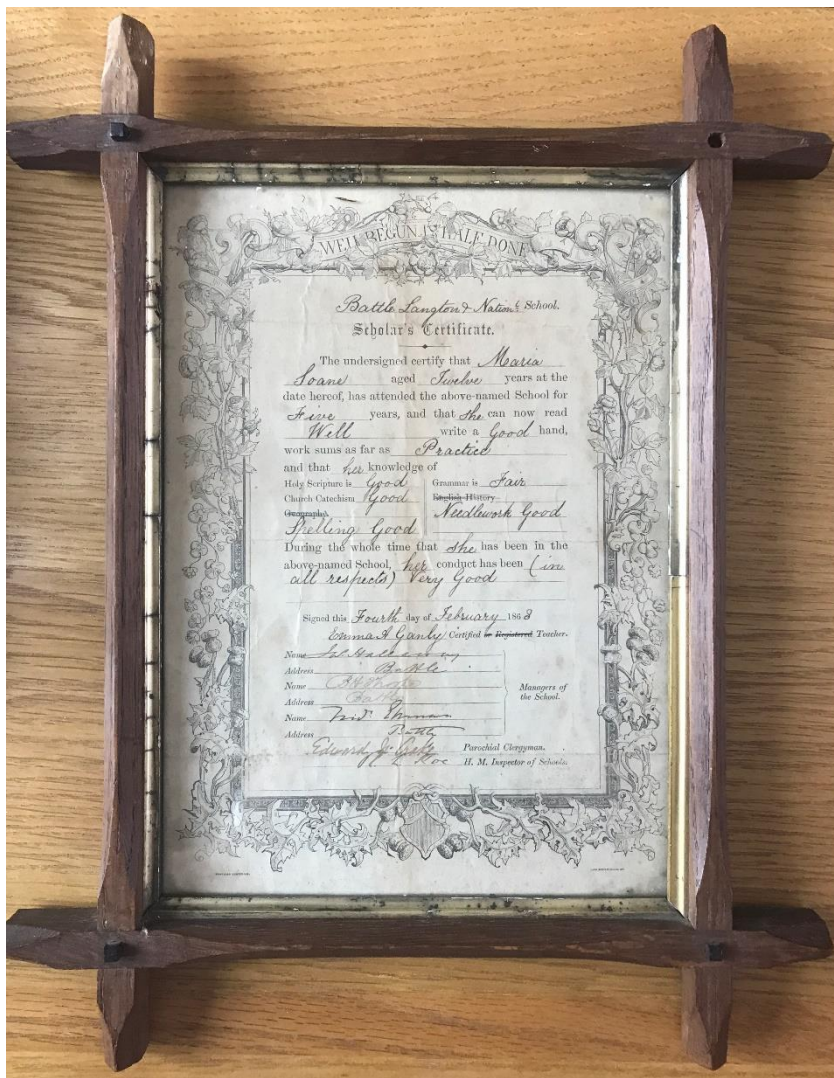 WELL BEGUN IS HALF DONE
Battle Langton & Nationl School.
Scholar's Certificate.
The undersigned certify that Maria
Soane aged Twelve years at the
date hereof, has attended the above-named School for
Five years, and that she can now read
Well write a Good hand,
work sums as far as Practice
and that her knowledge of
Holy Scripture is Good Grammar is Fair
Church Catechism Good English History
Geography Needlework Good
Spelling Good
During the whole time that she has been in the
above-named School, her conduct has been (in
all respects) Very Good
Signed this Fourth day of February 1863
Emma A Ganly Certified or Registered Teacher.
Name
Address Battle
Name
Address Battle
Name
Address Battle
Managers of
the School.
Edward Parochial Clergyman.
H. M. Inspector of Schools.